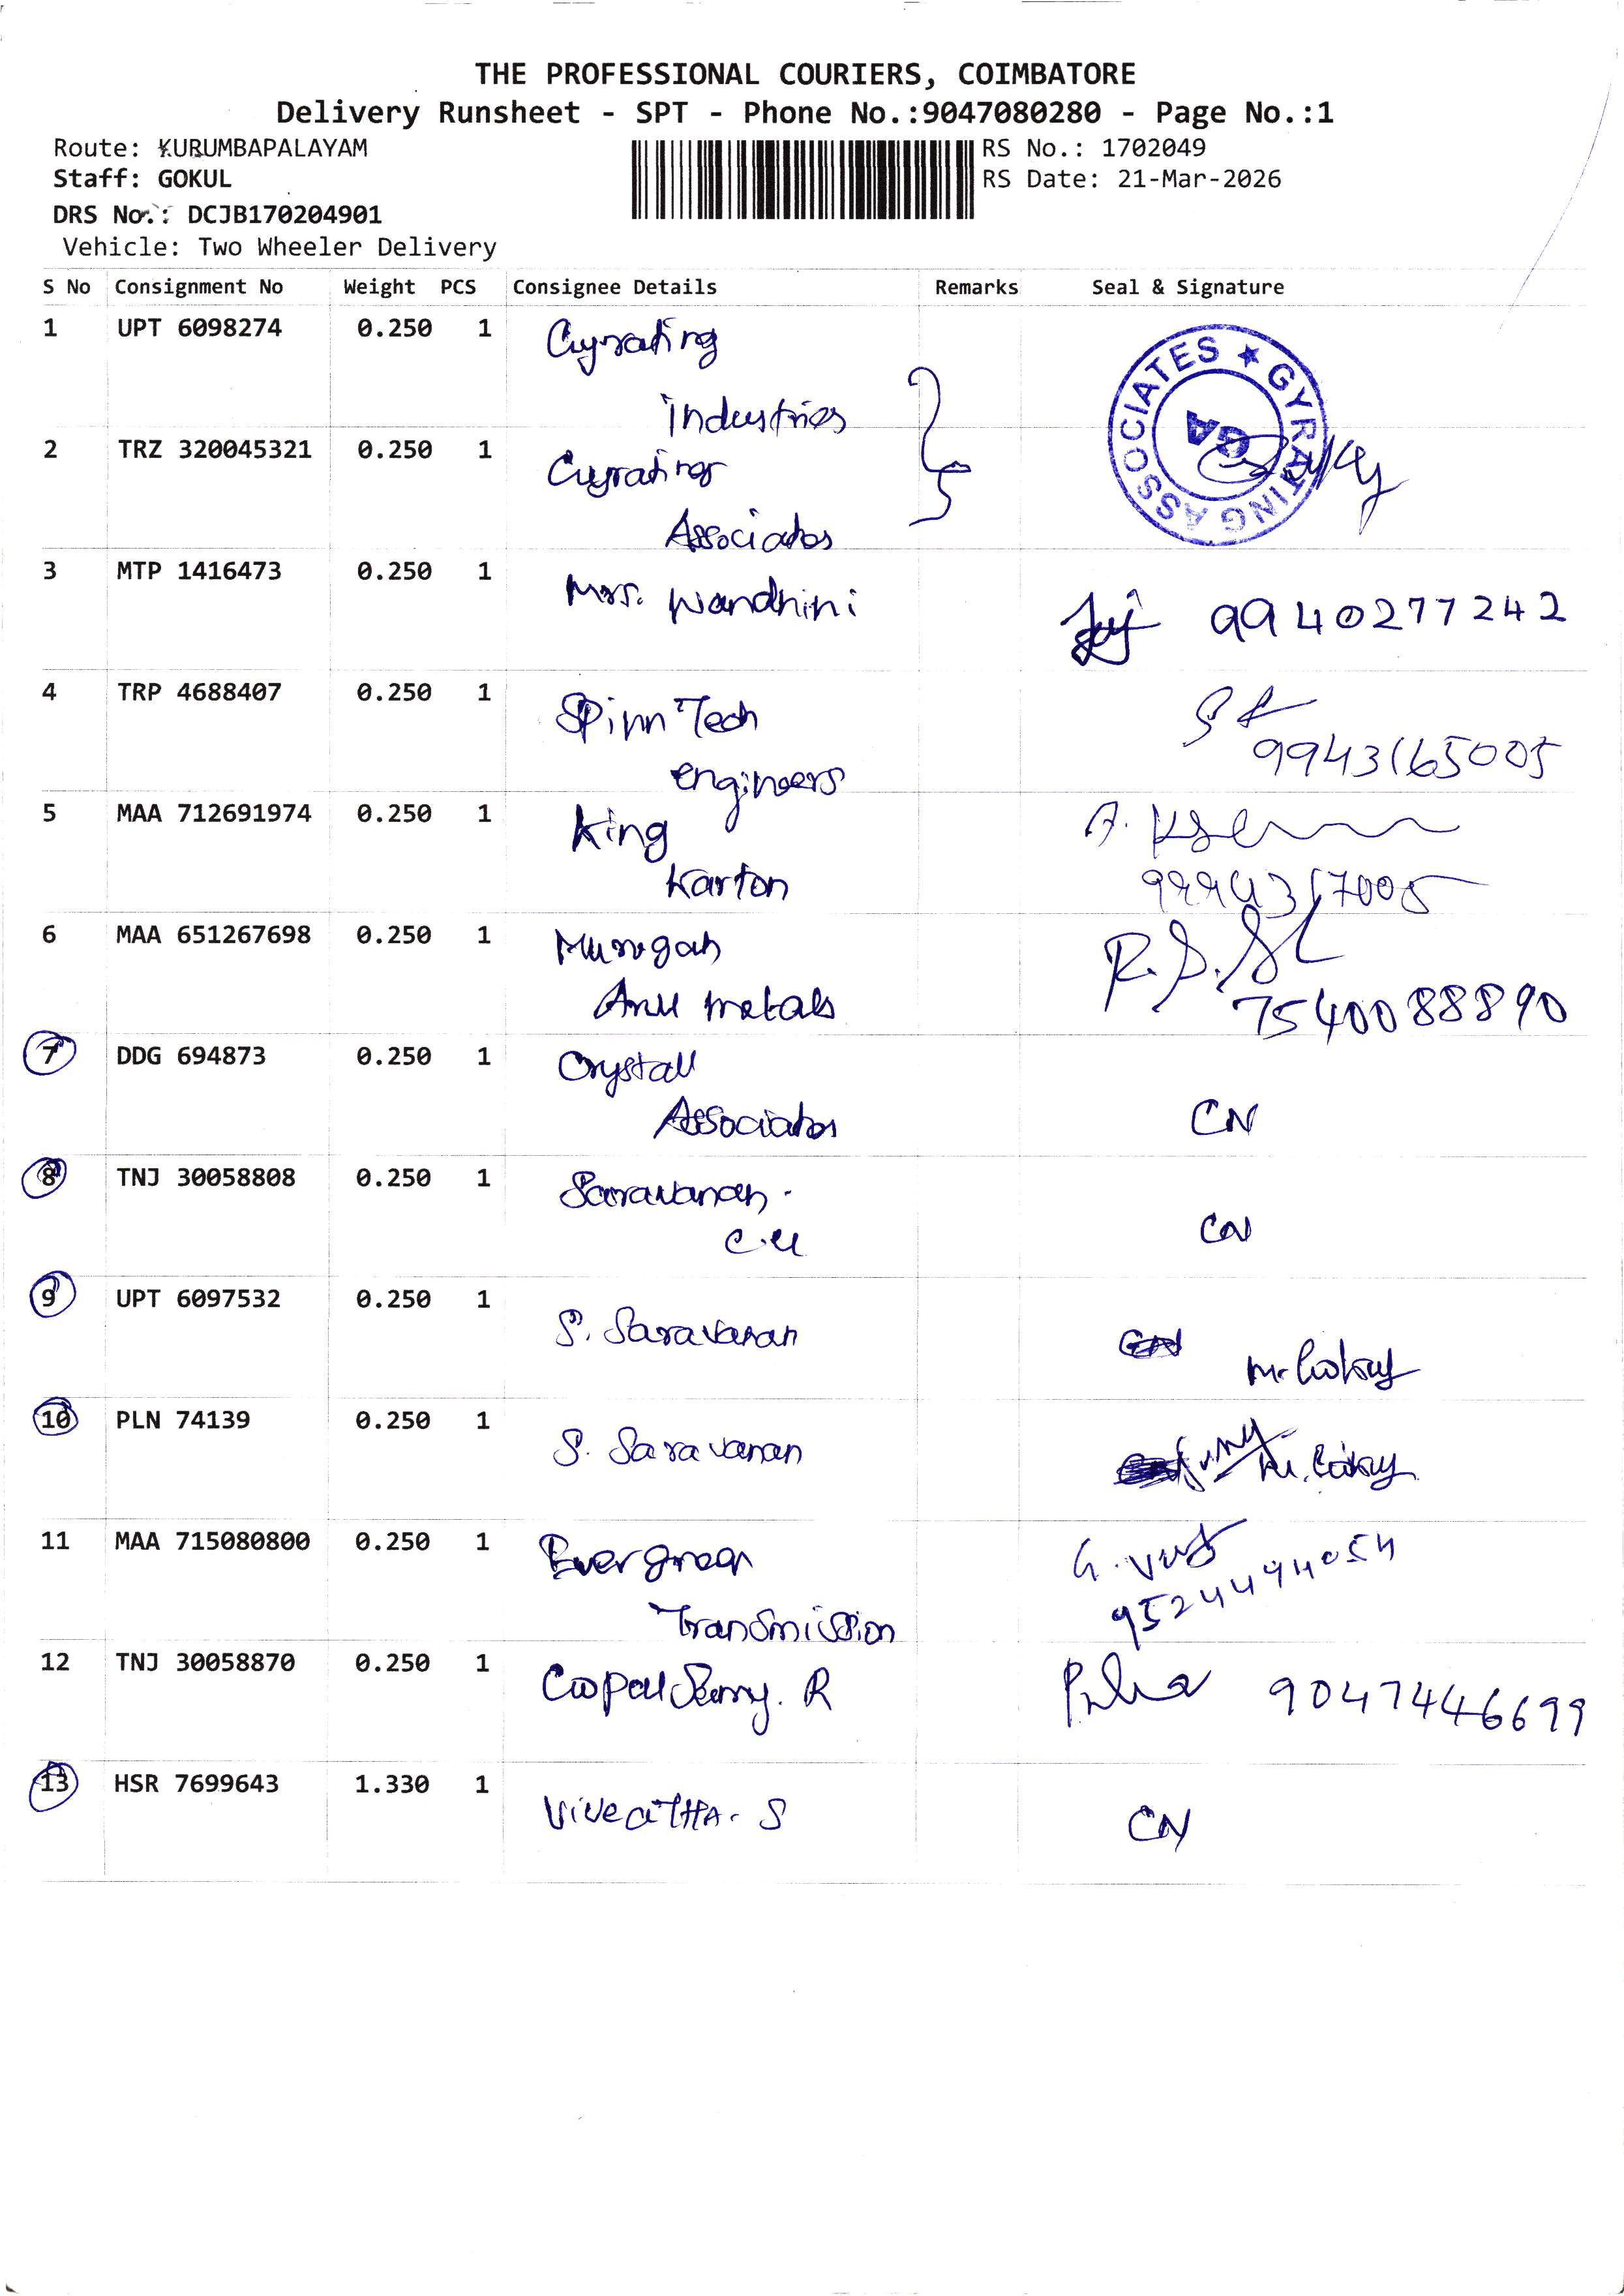 THE PROFESSIONAL COURIERS, COIMBATORE
Delivery Runsheet - SPT - Phone No.:9047080280 - Page No.:1
Route: KURUMBAPALAYAM
RS No.: 1702049
Staff: GOKUL
RS Date: 21-Mar-2026
DRS No.: DCJB170204901
Vehicle: Two Wheeler Delivery
S No Consignment No Weight PCS Consignee Details Remarks Seal & Signature
1 UPT 6098274 0.250 1 Gyrating
Industries
GYRATING ASSOCIATES ★
GA
2 TRZ 320045321 0.250 1 Gyrating
Associates
3 MTP 1416473 0.250 1 Mrs. Nandhini 9940277242
4 TRP 4688407 0.250 1 Spinn Tech
engineers
9943165005
5 MAA 712691974 0.250 1 King
Karton
9994367005
6 MAA 651267698 0.250 1 Murugan
Anu metals
7540088890
7 DDG 694873 0.250 1 Crystall
Associates CN
8 TNJ 30058808 0.250 1 Saravanan.
C.U CN
9 UPT 6097532 0.250 1 S. Saravanan
10 PLN 74139 0.250 1 S. Saravanan
11 MAA 715080800 0.250 1 Evergreen
Transmission
9524494054
12 TNJ 30058870 0.250 1 Gopalsamy. R 9047446699
13 HSR 7699643 1.330 1 CN